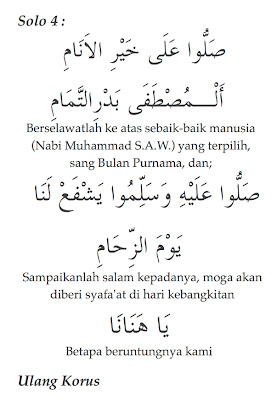 Solo 4 :
صَلُّوا عَلَى خَيْرِ الأَنَامِ
أَلْـمُصْطَفَى بَدْرِالتَّمَامِ
Berselawatlah ke atas sebaik-baik manusia
(Nabi Muhammad S.A.W.) yang terpilih,
sang Bulan Purnama, dan;
صَلُّوا عَلَيْهِ وَسَلِّمُوا يَشْفَعْ لَنَا
يَوْمَ الزِّحَامِ
Sampaikanlah salam kepadanya, moga akan
diberi syafa'at di hari kebangkitan
يَا هَنَانَا
Betapa beruntungnya kami
Ulang Korus